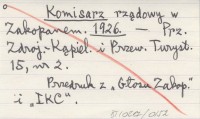 Komisarz rządowy w
Zakopanem. 1926. — Prz.
Zdroj.-Kąpiel. i Przew. Turyst.
15, nr 2.
Przedruk z „Głosu Zakop."
i „IKC".